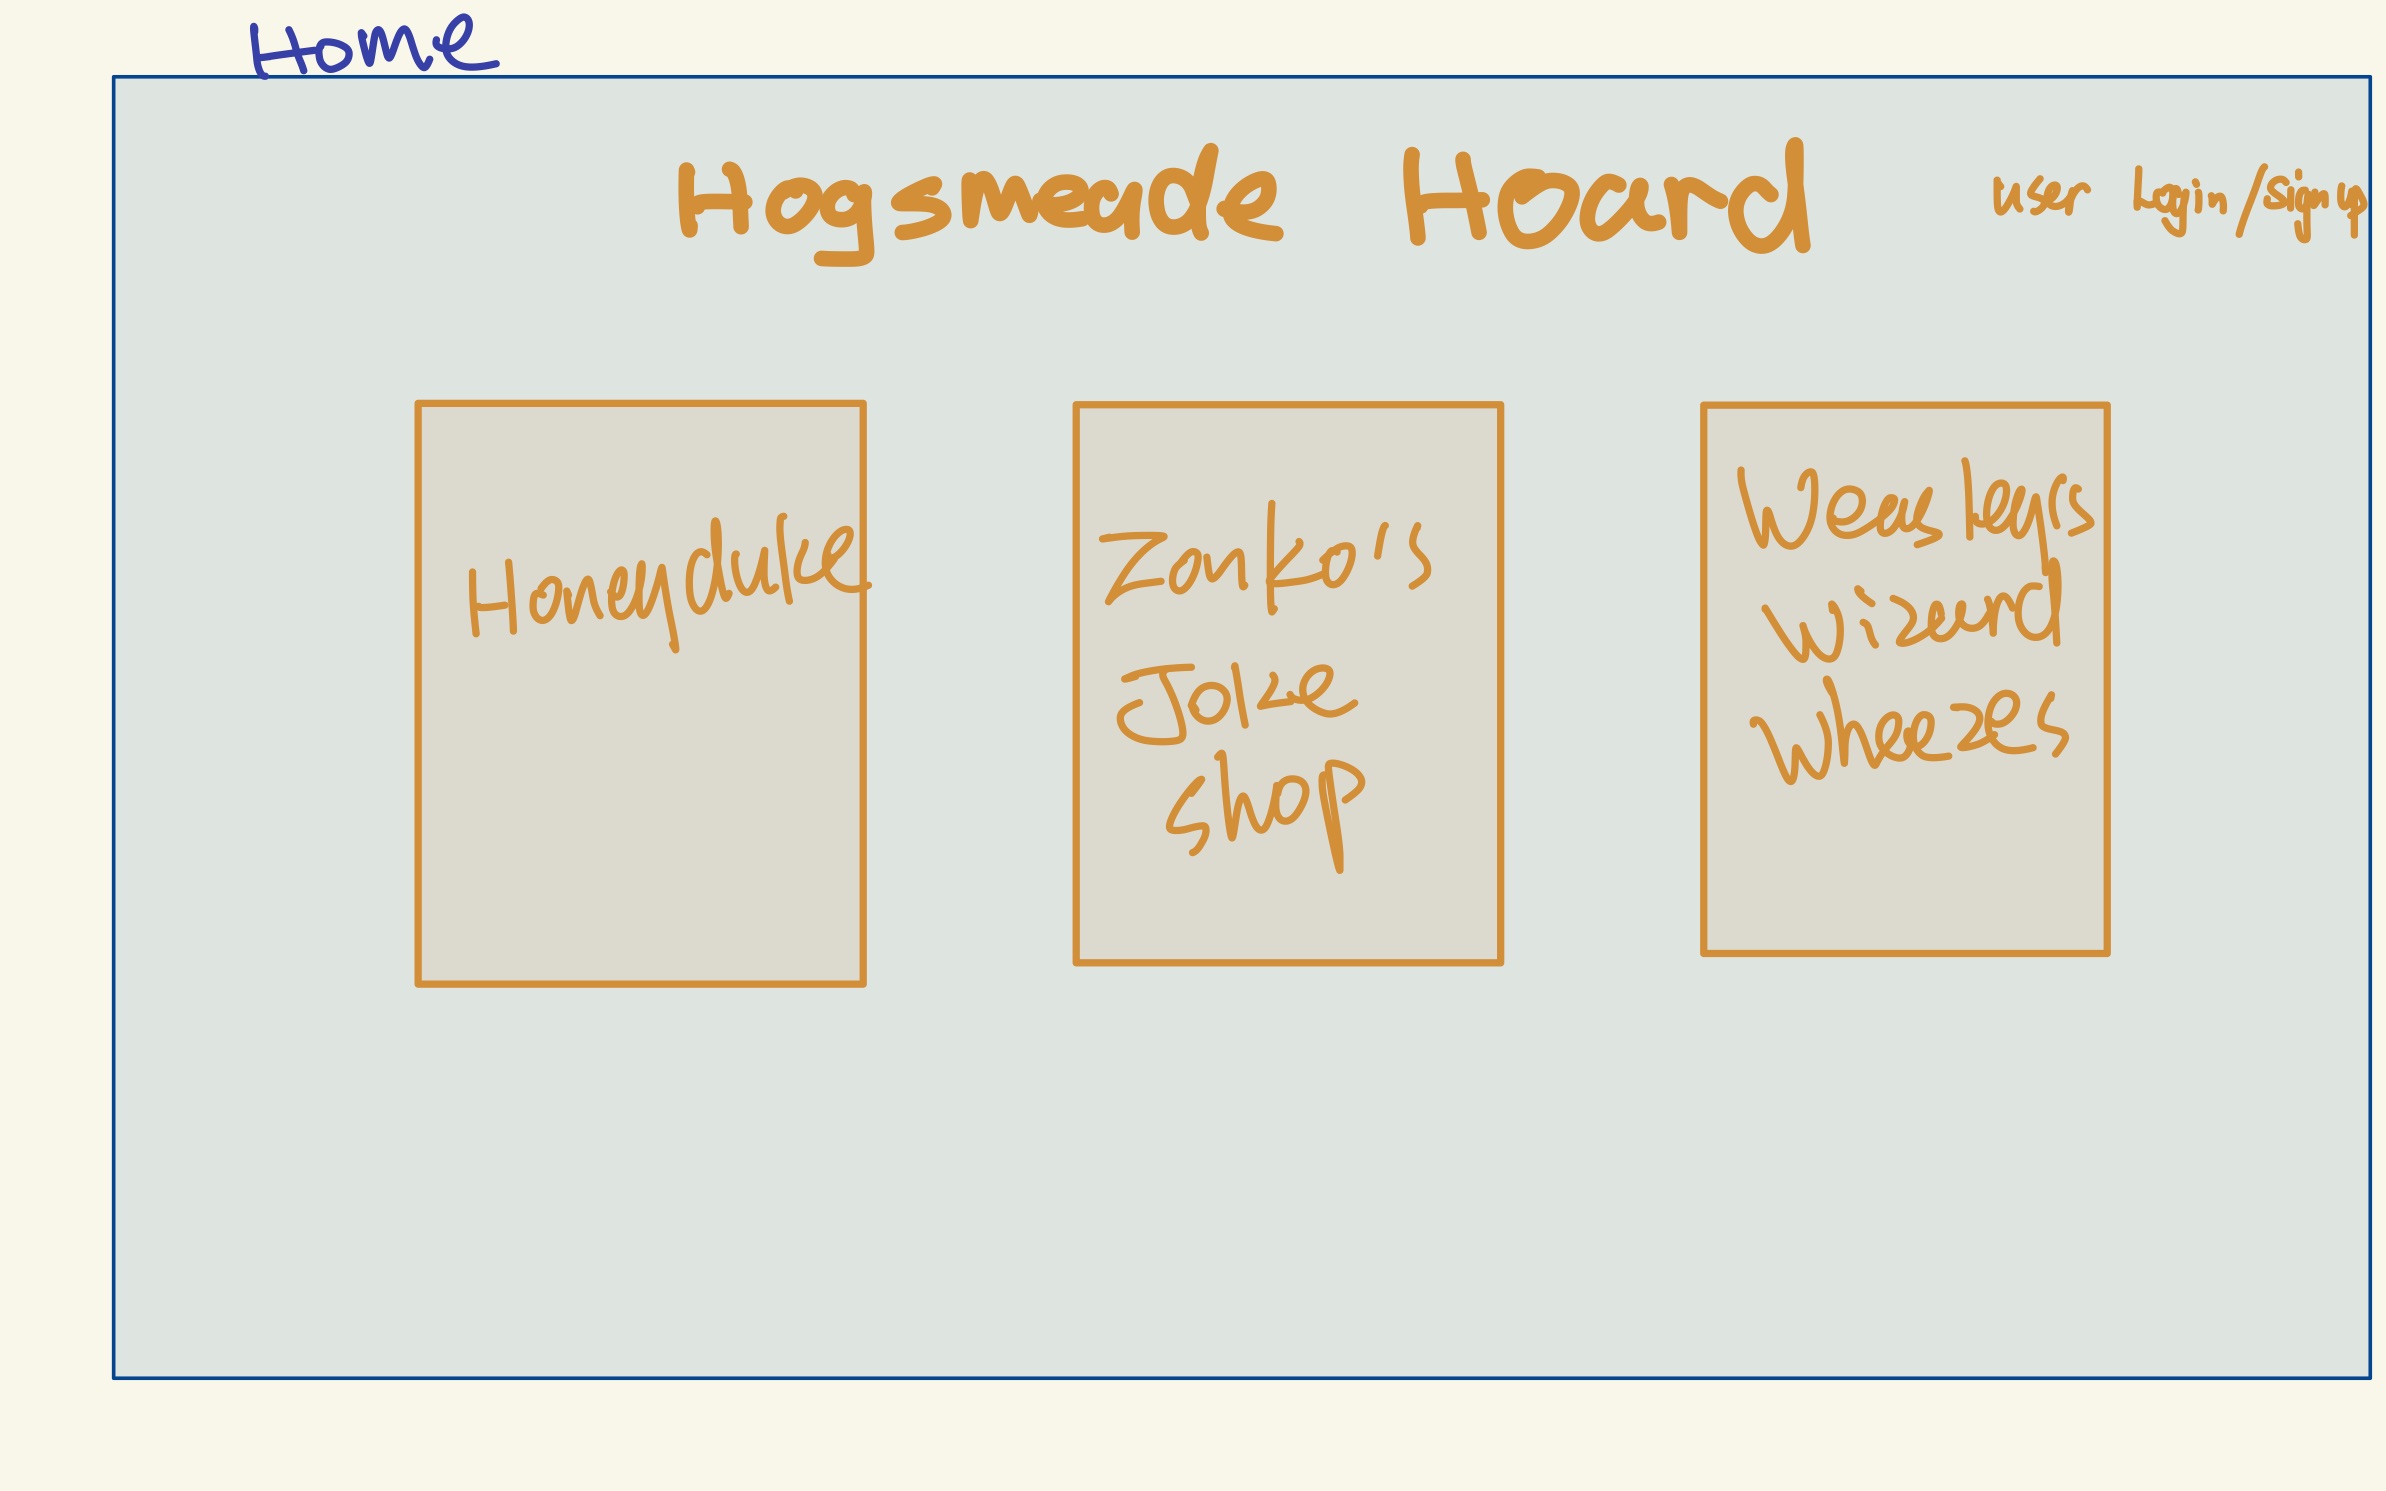 Home
Hogsmeade Hoard
user login/signup
Honeyduke
Zonko's
Joke
Shop
Weasley's
Wizard
Wheezes